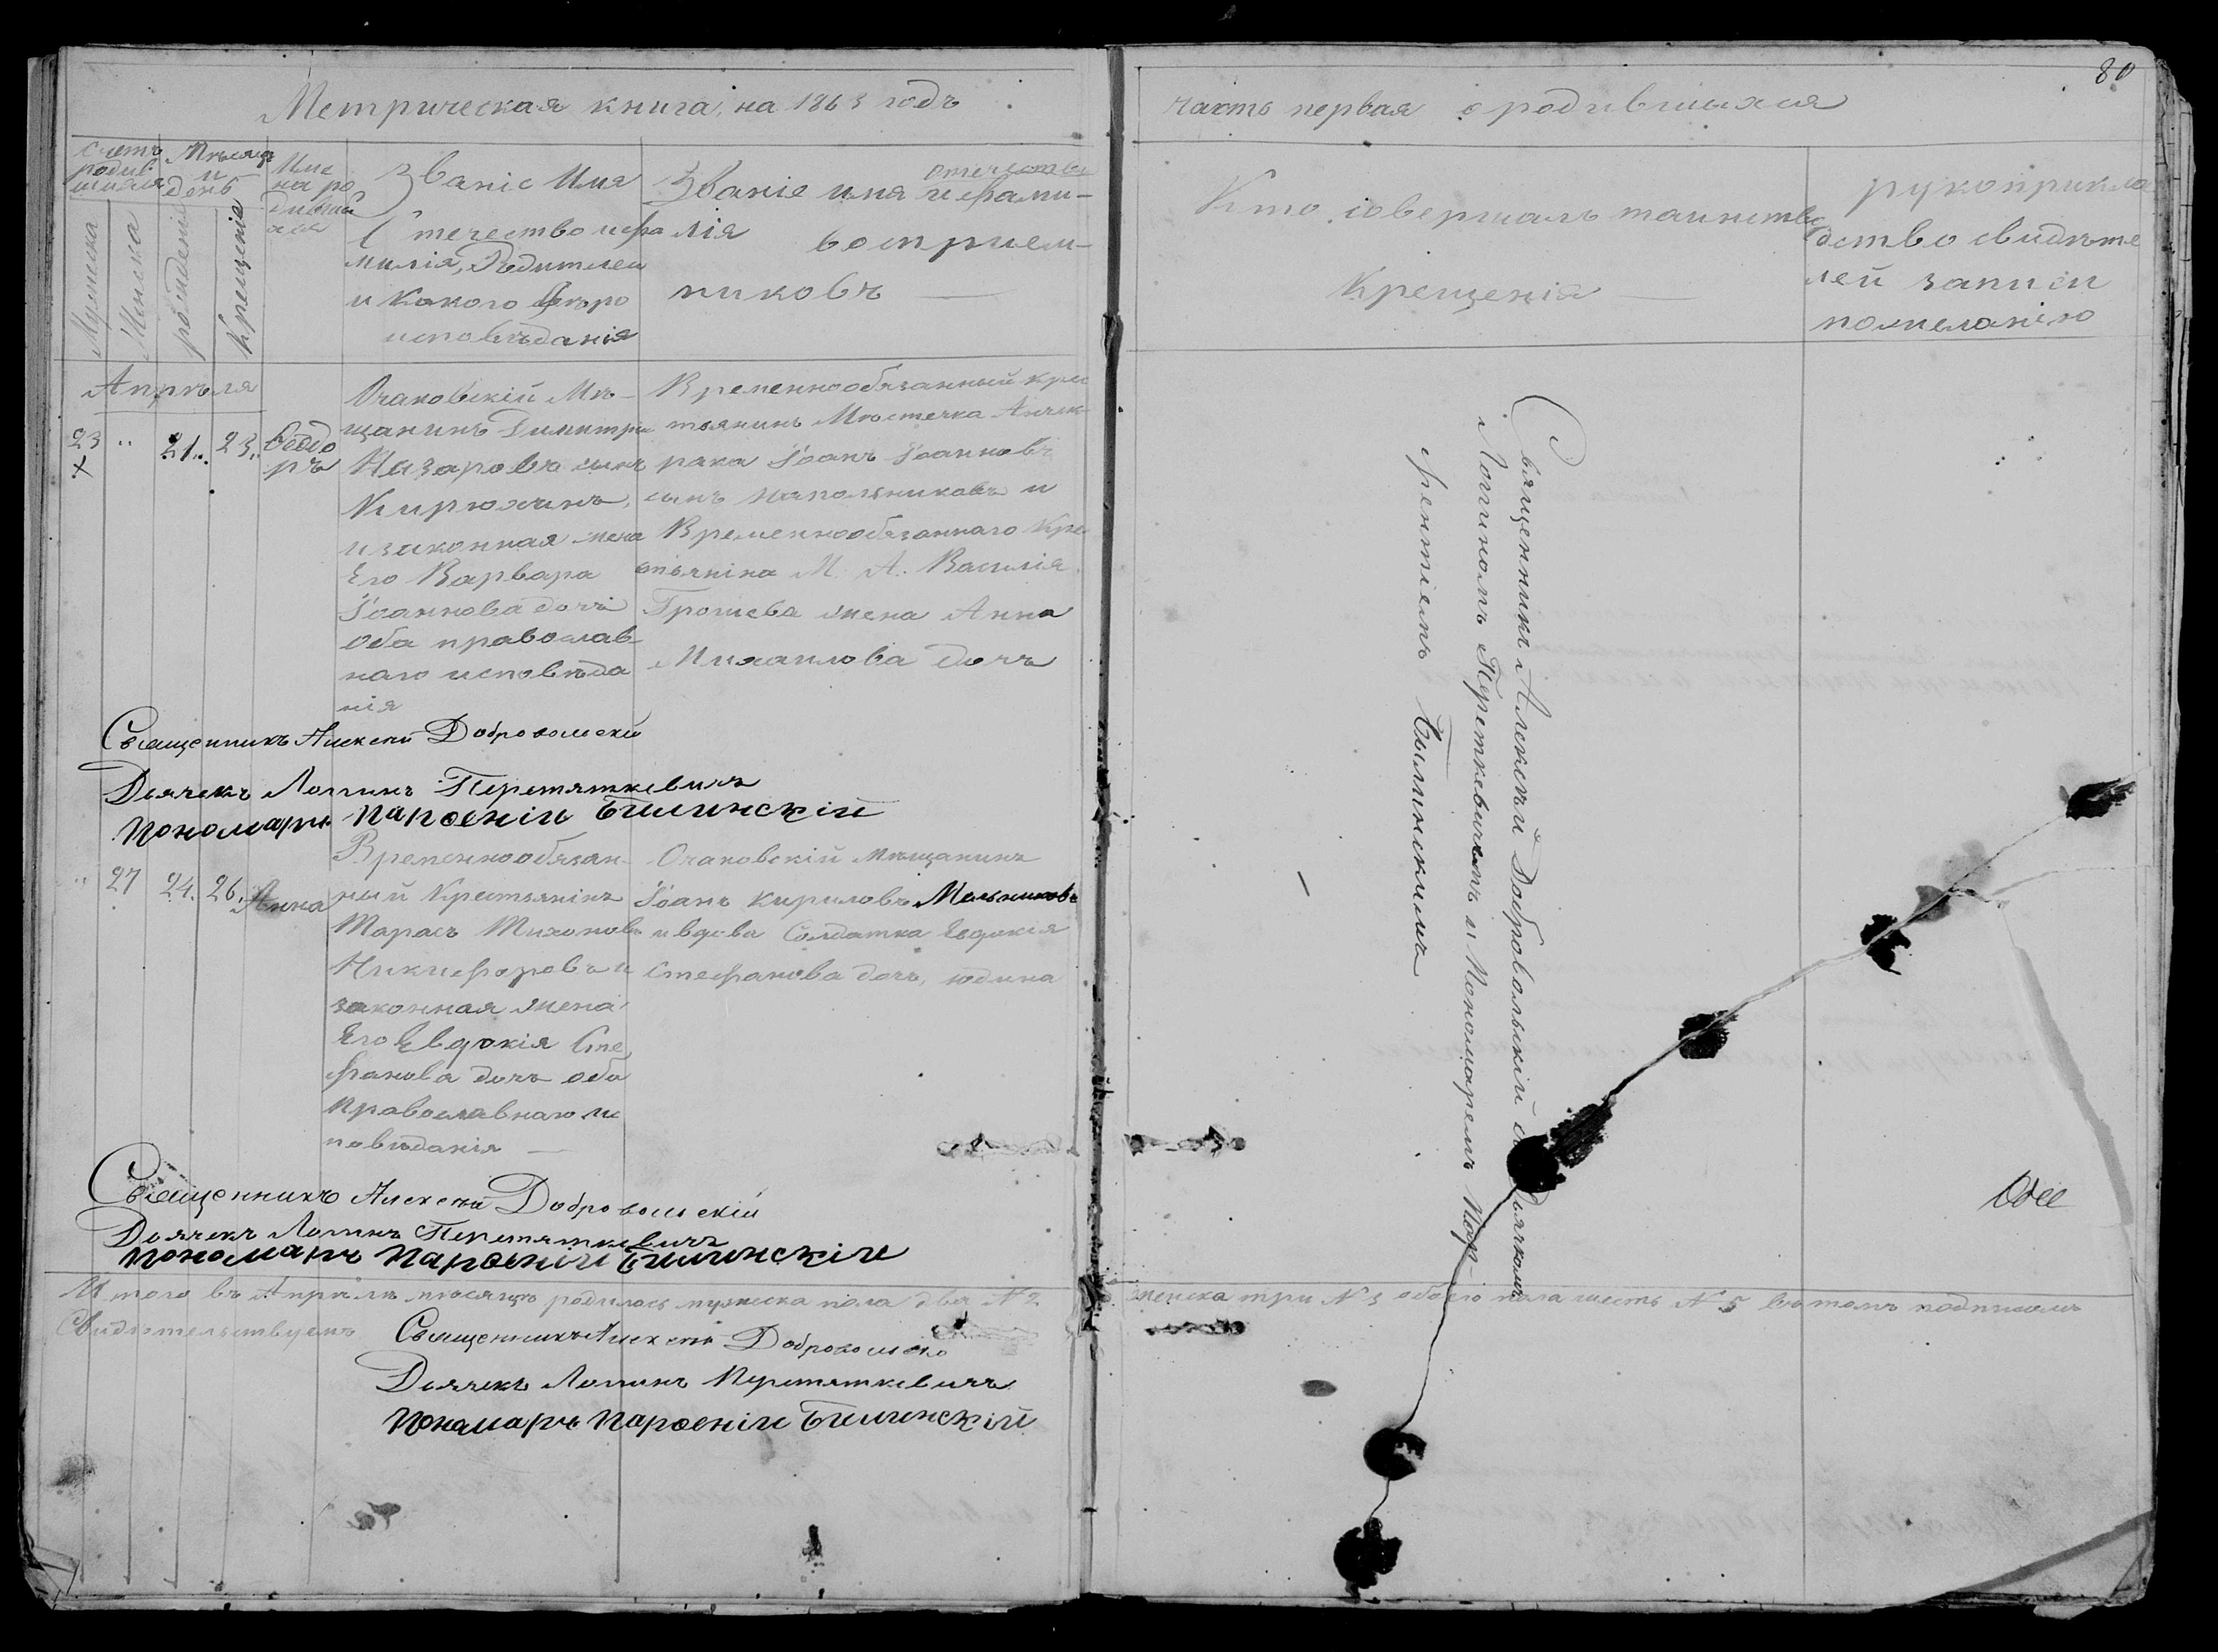 80
Метрическая книга, на 1863 годъ
часть первая о родившихся
Счетъ родив шихся
Мужеска
Женска
Мѣсяцъ и день
рожденія
Крещенія
Име на ро дивши хся
Званіе Имя
Отечество и фа
милія, Родителей
и Какого Вѣро
исповѣданія
отечество
Званіе имя и фами-
лія восприем-
никовъ —
Кто совершалъ таинство
Крещенія —
рукоприкла
дство свидѣте
лей записи
по желанію
Апрѣля
23 " 21. 23. Ѳеодо
ръ
Очаковскій Мѣ-
щанинъ Димитри
Назаровъ сынъ
Кирюхинъ,
и законная жена
Его Варвара
Іоаннова дочь
Оба православ
наго исповѣда
нія
Временнообязанный кре
стьянинъ Мѣстечка Анчек
рака Іоанъ Іоанновъ
сынъ Напольниковъ и
Временнообязаннаго Кре
стьянина М. А. Василія
Грошева жена Анна
Михаилова дочь
Священникъ Алексѣй Добровольскій
Дьячекъ Логинъ Перетяткевичъ
Пономарь Парѳеній Былинскій
" 27 24. 26. Анна
Временнообязан-
ный Крестьянинъ
Тарасъ Тихоновъ
Никифоровъ и
законная жена
Его Евдокія Сте
фанова дочь оба
Православнаго ис
повѣданія —
Очаковскій мѣщанинъ
Іоанъ Кириловъ Мельниковъ
и вдова Солдатка Евдокія
Стефанова дочь, Юдина
Священникъ Алексѣй Добровольскій
Дьячекъ Логинъ Перетяткевичъ
Пономарь Парѳеній Былинскій
Священникъ Алексѣй Добровольскій съ Дьячкомъ
Логгиномъ Переткевичемъ и Пономаремъ Пар-
фентіемъ Былинскимъ
Итого въ Апрѣлѣ мѣсяцѣ родилось мужеска пола два № 2
женска три № 3 обоего пола шесть № 5 въ томъ подписомъ
Свидѣтельствуемъ
Священникъ Алексѣй Добровольскій
Дьячекъ Логинъ Перетяткевичъ
Пономарь Парѳеній Былинскій